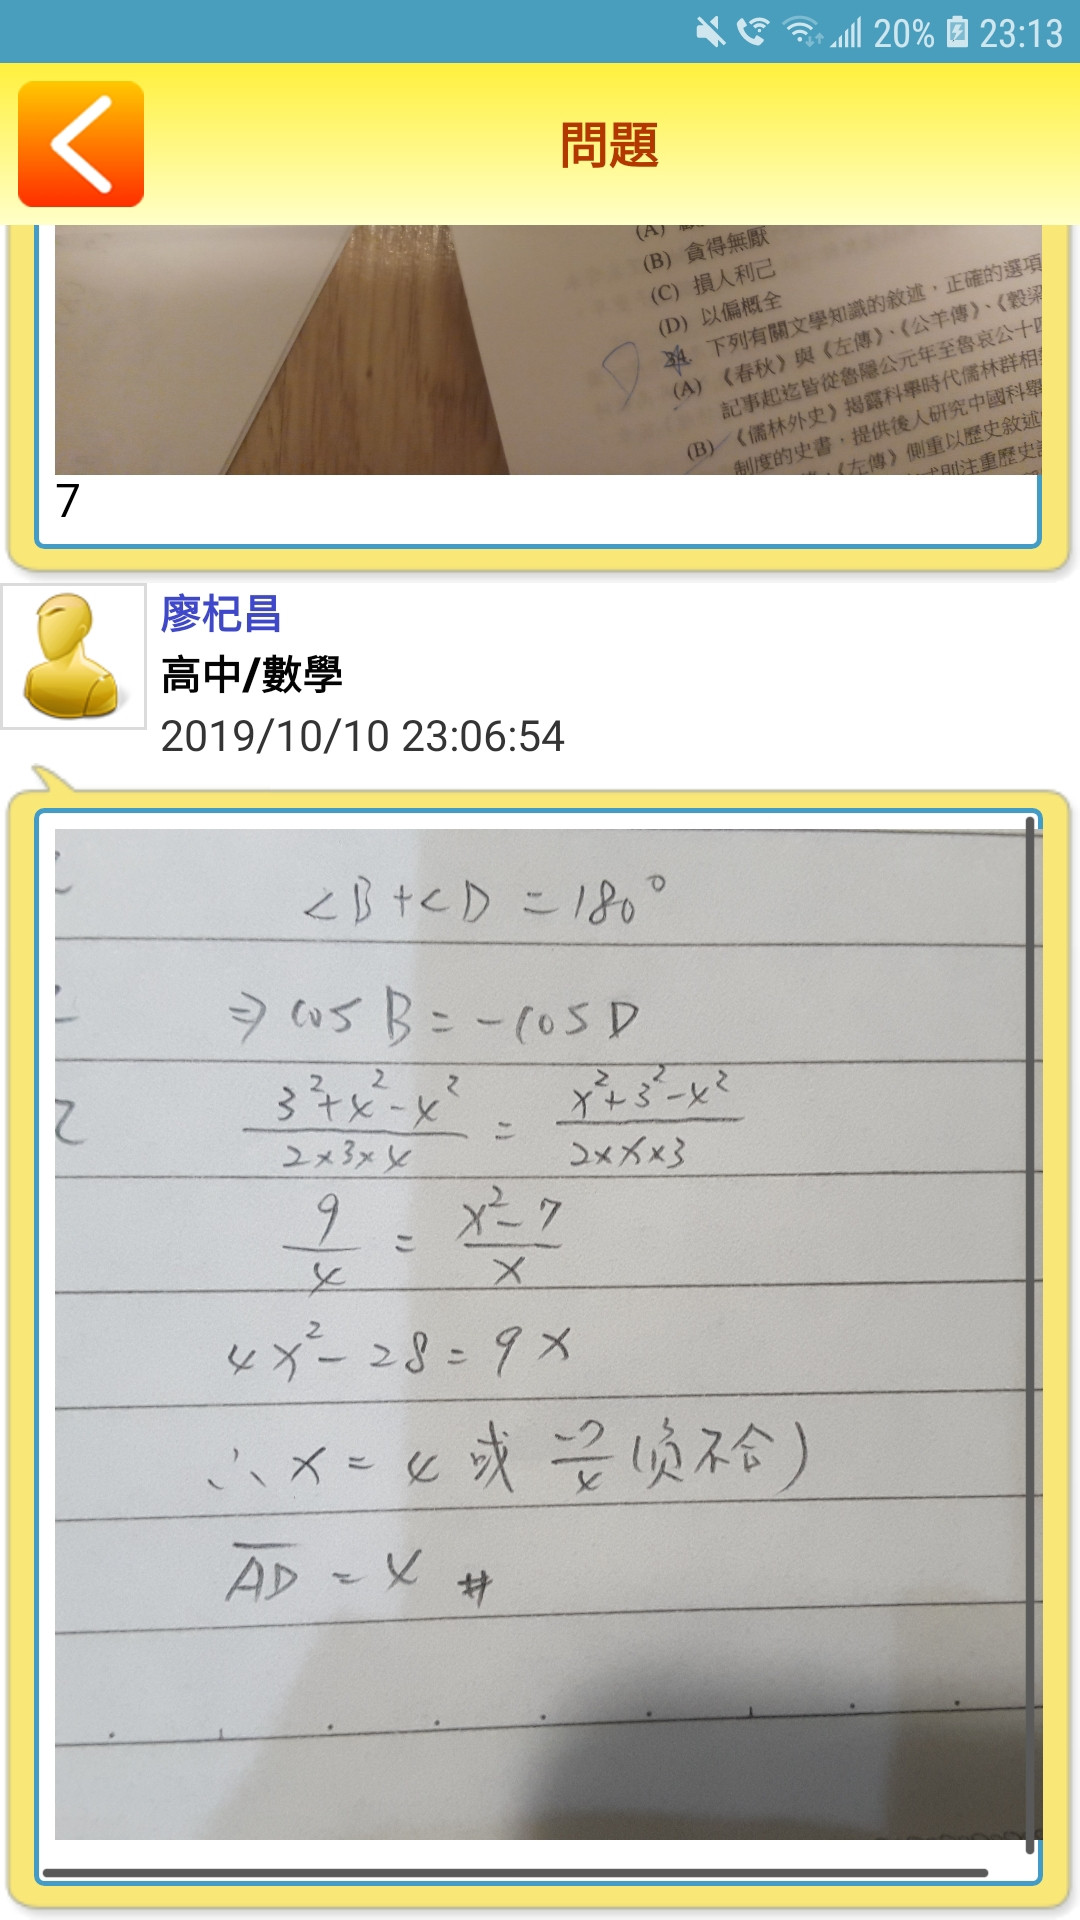 20% 23:13
問題
(B) 貪得無厭
(C) 損人利己
(D) 以偏概全
下列有關文學知識的敘述，正確的選項
(A) 《春秋》與《左傳》、《公羊傳》、《穀梁
記事起迄皆從魯隱公元年至魯哀公十四
(B) 《儒林外史》揭露科舉時代儒林群相
制度的史書，提供後人研究中國科舉
《左傳》側重以歷史敘述
則注重歷史
7
廖杞昌
高中/數學
2019/10/10 23:06:54
<B+<D = 180°
⇒ cos B = -cos D
3²+4²-4² / 2×3×4 = x²+3²-4² / 2×x×3
9/4 = x²-7 / x
4x²-28 = 9x
∴ x = 4 或 -7/4 (负不合)
AD = 4 #